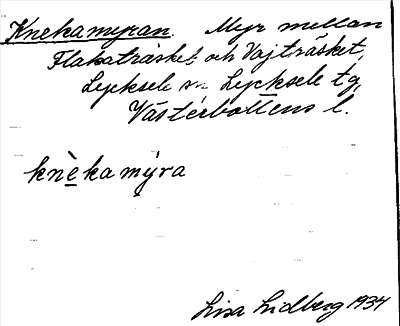 Knekamyran. Myr mellan
Flakaträsket och Vajträsket,
Lycksele sn Lycksele tg,
Västerbottens l.
knèkamýra
Lisa Lidberg 1934